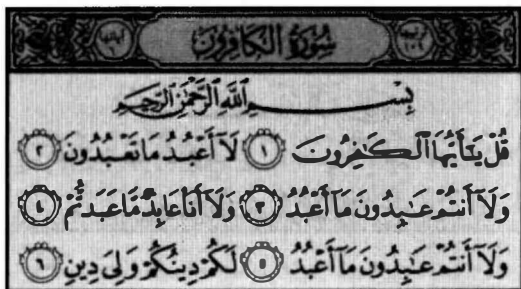 سُورَةُ الْكَافِرُونَ
بِسْمِ اللَّهِ الرَّحْمَٰنِ الرَّحِيمِ
قُلْ يَٰٓأَيُّهَا ٱلْكَٰفِرُونَ ١ لَآ أَعْبُدُ مَا تَعْبُدُونَ ٢
وَلَآ أَنتُمْ عَٰبِدُونَ مَآ أَعْبُدُ ٣ وَلَآ أَنَا۠ عَابِدٌ مَّا عَبَدتُّمْ ٤
وَلَآ أَنتُمْ عَٰبِدُونَ مَآ أَعْبُدُ ٥ لَكُمْ دِينُكُمْ وَلِىَ دِينِ ٦